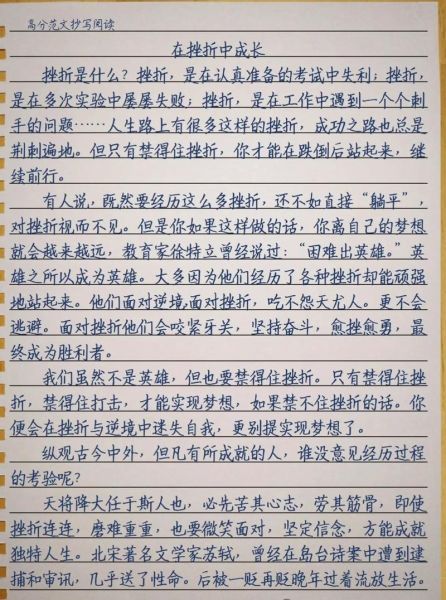 高分范文抄写阅读
在挫折中成长
挫折是什么?挫折,是在认真准备的考试中失利;挫折,
是在多次实验中屡屡失败;挫折,是在工作中遇到一个个刺
手的问题……人生路上有很多这样的挫折,成功之路也总是
荆刺遍地。但只有禁得住挫折,你才能在跌倒后站起来,继
续前行。
有人说,既然要经历这么多挫折,还不如直接“躺平”,
对挫折视而不见。但是你如果这样做的话,你离自己的梦想
就会越来越远,教育家徐特立曾经说过:“困难出英雄。”英
雄之所以成为英雄。大多因为他们经历了各种挫折却能顽强
地站起来。他们面对逆境,面对挫折,吃不怨天尤人。更不会
逃避。面对挫折他们会咬紧牙关,坚持奋斗,愈挫愈勇,最
终成为胜利者。
我们虽然不是英雄,但也要禁得住挫折。只有禁得住挫
折,禁得住打击,才能实现梦想,如果禁不住挫折的话。你
便会在挫折与逆境中迷失自我,更别提实现梦想了。
纵观古今中外,但凡有所成就的人,谁没意见经历过程
的考验呢?
天将降大任于斯人也,必先苦其心志,劳其筋骨,即使
挫折连连,磨难重重,也要微笑面对,坚定信念,方能成就
独特人生。北宋著名文学家苏轼,曾经在岛台诗案中遭到逮
捕和审讯,几乎送了性命。后被一贬再贬晚年过着流放生活。